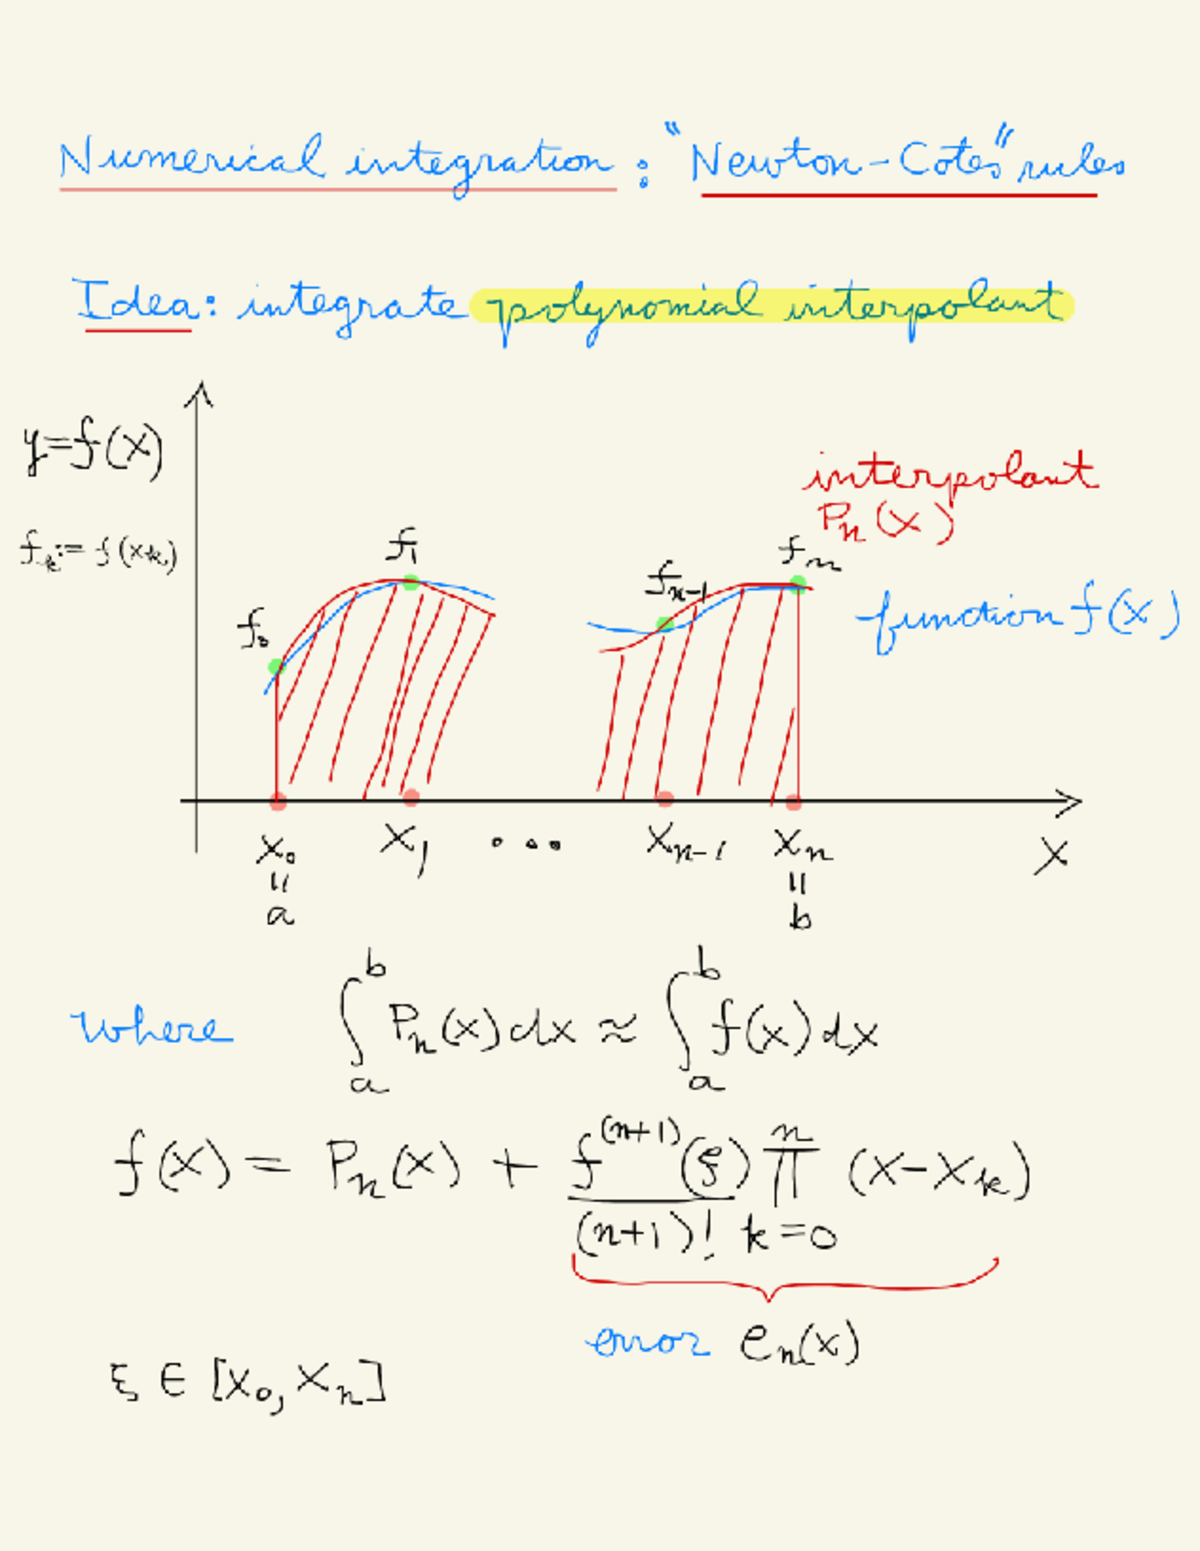 Numerical integration : "Newton-Cotes" rules
Idea: integrate polynomial interpolant
y=f(x)
interpolant
Pn(x)
fk:= f(xk)
f1
fn
fn-1
f0
function f(x)
x0 x1 ... xn-1 xn x
॥ ॥
a b
where ∫_a^b Pn(x)dx ≈ ∫_a^b f(x)dx
f(x) = Pn(x) + f^(n+1)(ξ)/(n+1)! ∏_{k=0}^n (x-xk)
error en(x)
ξ ∈ [x0, xn]